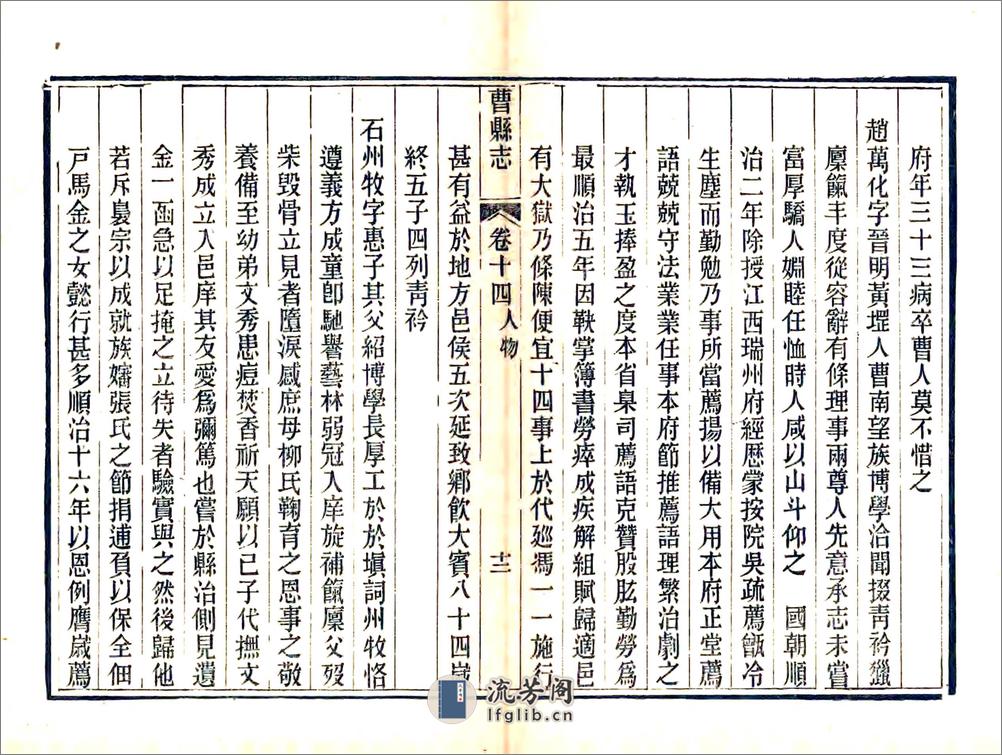 府年三十三病卒曹人莫不惜之
趙萬化字晉明黃堽人曹南望族博學洽聞掇青衿獵
廩餼丰度從容辭有條理事兩尊人先意承志未嘗
富厚驕人婣睦任恤時人咸以山斗仰之　國朝順
治二年除授江西瑞州府經歷蒙按院吳疏薦甑冷
生塵而勤勉乃事所當薦揚以備大用本府正堂薦
語兢兢守法業業任事本府節推薦語理繁治劇之
才執玉捧盈之度本省臬司薦語克贊股肱勤勞爲
最順治五年因鞅掌簿書勞瘁成疾解組賦歸適邑
有大獄乃條陳便宜十四事上於代廵馮一一施行
甚有益於地方邑侯五次延致鄉飲大賓八十四歲
終五子四列靑衿
曹縣志
卷十四人物
十二
石州牧字惠子其父紹博學長厚工於於塡詞州牧恪
遵義方成童卽馳譽藝林弱冠入庠旋補餼廩父歿
柴毀骨立見者墮淚感庶母柳氏鞠育之恩事之敬
養備至幼弟文秀患痘焚香祈天願以已子代撫文
秀成立入邑庠其友愛爲彌篤也嘗於縣治側見遺
金一函急以足掩之立待失者驗實與之然後歸他
若斥曩宗以成就族嬸張氏之節捐逋負以保全佃
戶馬金之女懿行甚多順治十六年以恩例膺歲薦
流芳阁
lfglib.cn